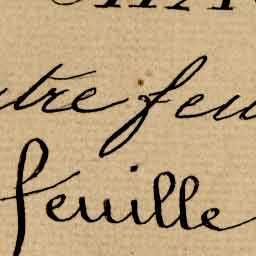 tre feu
feuille